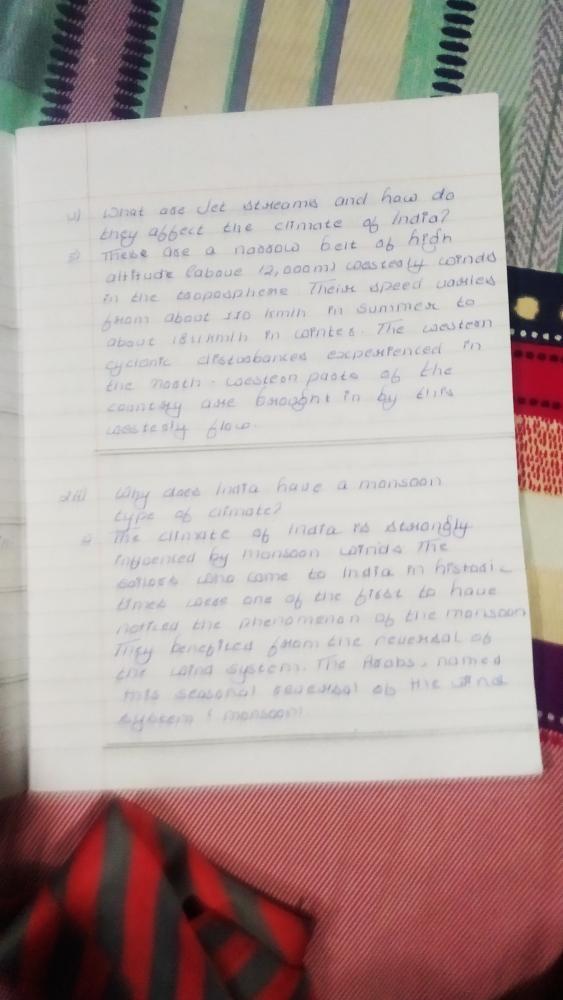 v) What are Jet streams and how do
they affect the climate of India?
These are a narrow belt of high
altitude (above 12,000m) westerly winds
in the troposphere. Their speed varies
from about 110 km/h in summer to
about 184 km/h in winter. The western
cyclonic disturbances experienced in
the north-western parts of the
country are brought in by this
westerly flow.
Why does India have a monsoon
type of climate?
The climate of India is strongly
influenced by monsoon winds. The
sailors who came to India in historic
times were one of the first to have
noticed the phenomenon of the monsoon
They benefited from the reversal of
the wind system. The Arabs, named
this seasonal reversal of the wind
system 'monsoon'